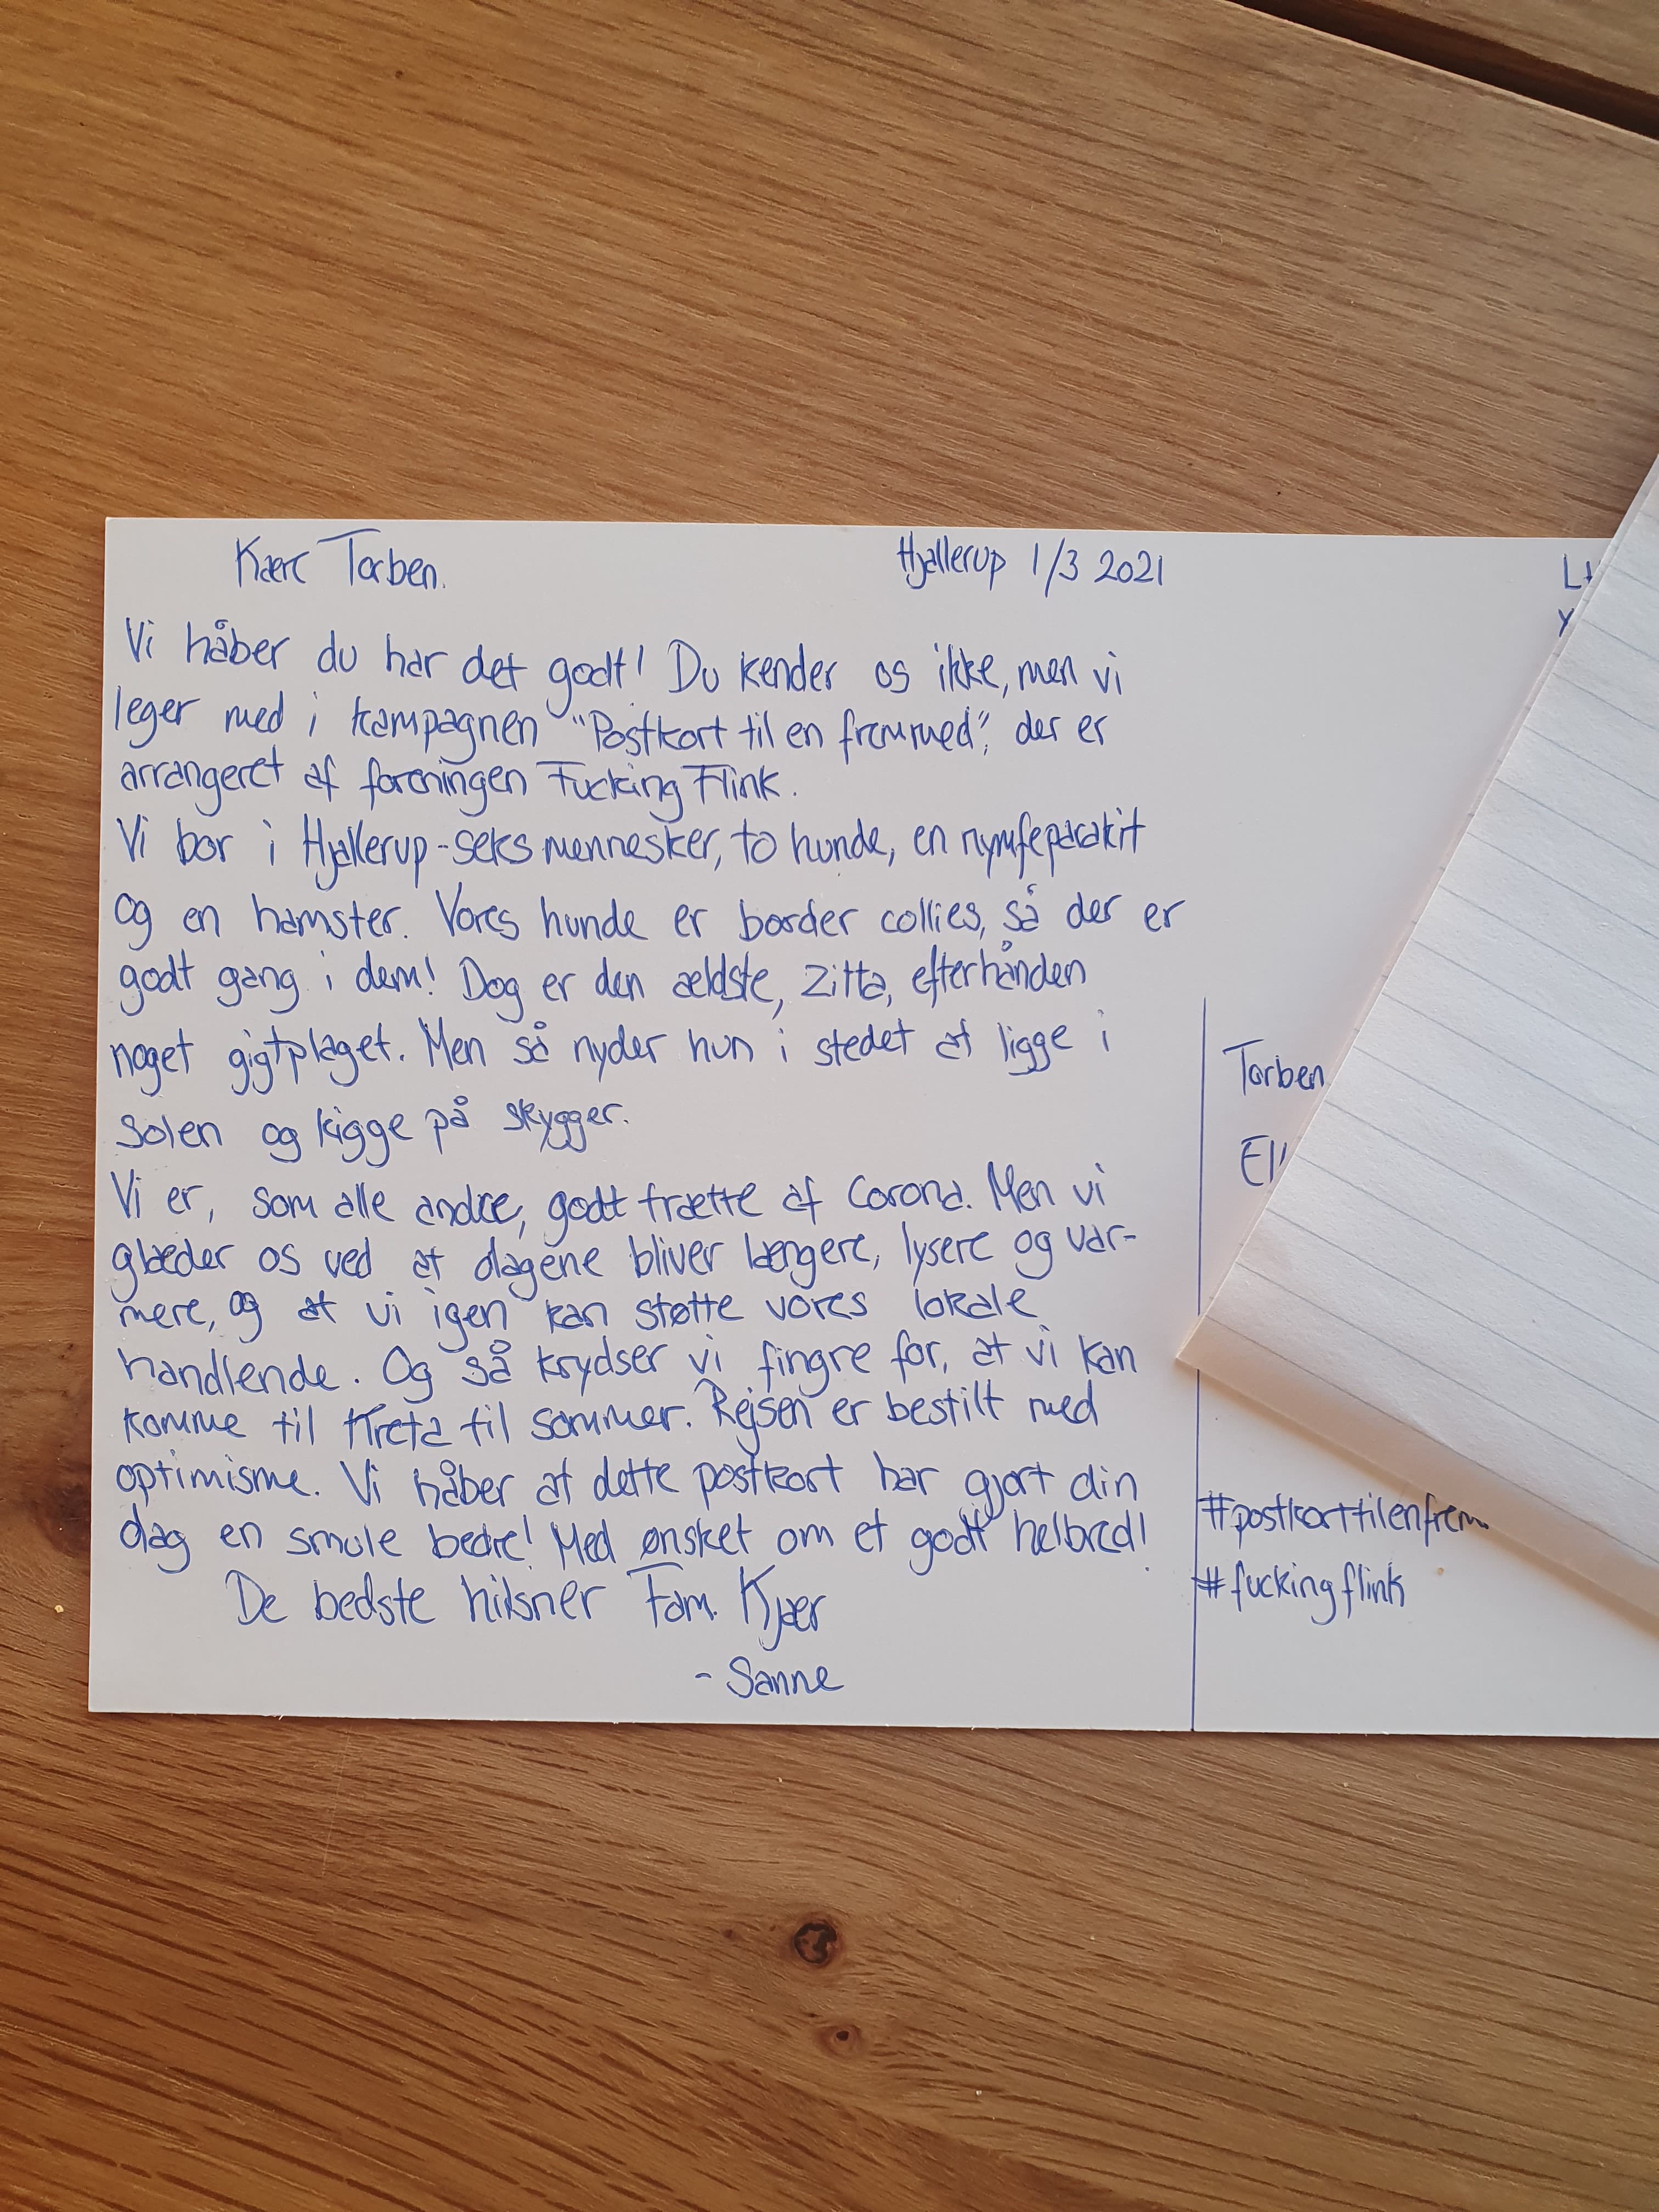 Kære Torben.
Hjallerup 1/3 2021
Vi håber du har det godt! Du kender os ikke, men vi
leger med i kampagnen "Postkort til en fremmed", der er
arrangeret af foreningen Fucking Flink.
Vi bor i Hjallerup - seks mennesker, to hunde, en nymfeparakit
og en hamster. Vores hunde er border collies, så der er
godt gang i dem! Dog er den ældste, Zitta, efterhånden
noget gigtplaget. Men så nyder hun i stedet at ligge i
solen og kigge på skygger.
Vi er, som alle andre, godt trætte af Corona. Men vi
glæder os ved at dagene bliver længere, lysere og var-
mere, og at vi igen kan støtte vores lokale
handlende. Og så krydser vi fingre for, at vi kan
komme til Kreta til sommer. Rejsen er bestilt med
optimisme. Vi håber at dette postkort har gjort din
dag en smule bedre! Med ønsket om et godt helbred!
De bedste hilsner Fam. Kjær
- Sanne
Torben
#postkorttilenfrem
#fuckingflink